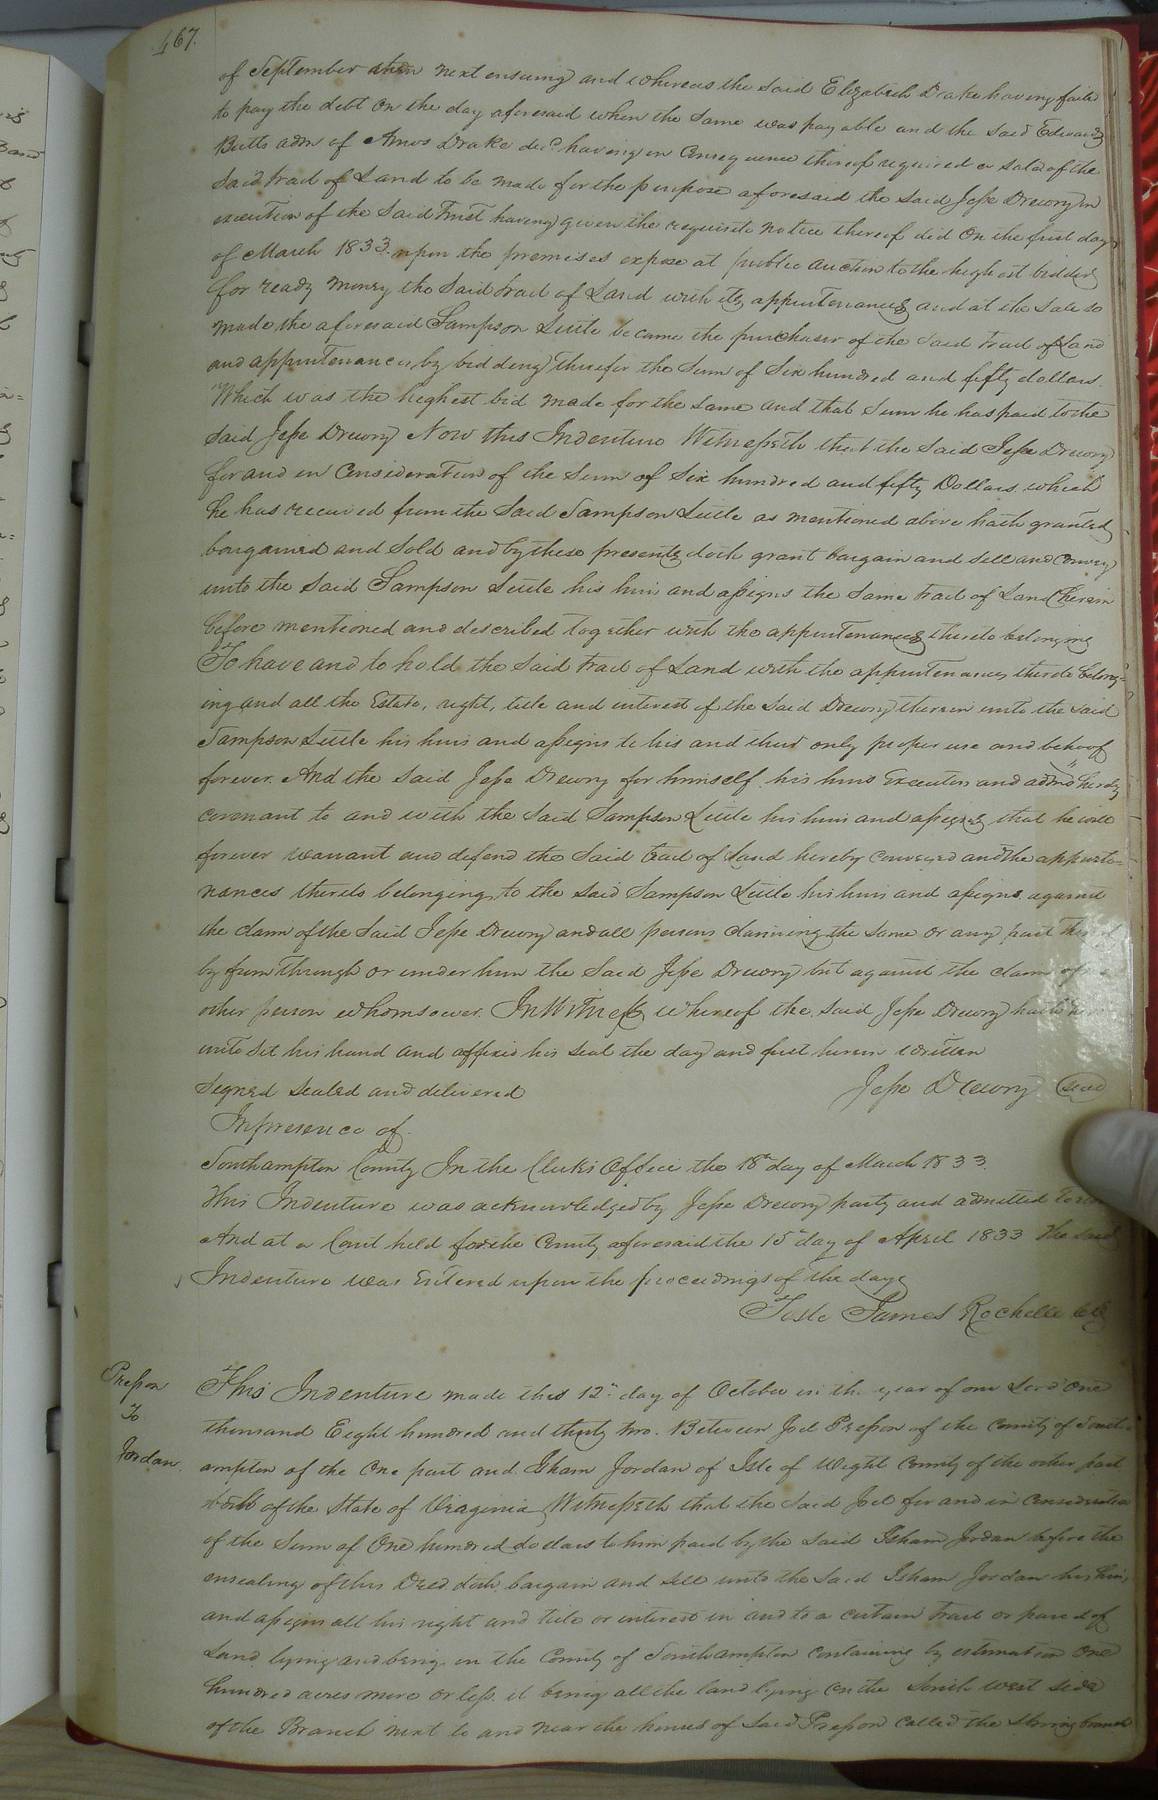 467.
of September then next ensuing and whereas the said Elizabeth Drake having failed
to pay the debt on the day aforesaid when the same was payable and the said Edwards
Butts adm of Amos Drake decd. having in Consequence thereof required a sale of the
said tract of Land to be made for the purpose aforesaid the said Jesse Drewry in
execution of the said Trust having given the requisite notice thereof did On the first day
of March 1833. upon the premises expose at public auction to the highest bidder
for ready money the said tract of Land with its appurtenances and at the sale so
made the aforesaid Sampson Little became the purchaser of the said tract of Land
and appurtenances by bidding therefor the sum of Six hundred and fifty dollars.
Which was the highest bid made for the same and that sum he has paid to the
said Jesse Drewry Now this Indenture Witnesseth that the said Jesse Drewry
for and in Consideration of the Sum of Six hundred and fifty Dollars which
he has received from the said Sampson Little as mentioned above hath granted
bargained and sold and by these presents doth grant bargain and sell and convey
unto the said Sampson Little his heirs and assigns the same tract of Land herein
before mentioned and described together with the appurtenances thereto belonging
To have and to hold the said tract of Land with the appurtenances thereto belong=
ing and all the Estate, right, title and interest of the said Drewry therein unto the said
Sampson Little his heirs and assigns to his and their only proper use and behoof
forever. And the said Jesse Drewry for himself his heirs Executors and adm'd hereby
covenant to and with the said Sampson Little his heirs and assigns that he will
forever warrant and defend the said tract of Land hereby conveyed and the appurte=
nances thereto belonging to the said Sampson Little his heirs and assigns against
the claim of the said Jesse Drewry and all persons claiming the same or any part
by from through or under him the said Jesse Drewry but against the claim of
other person whomsoever. In Witness whereof the said Jesse Drewry hath
unto set his hand and affixed his seal the day and first herein written
Signed sealed and delivered Jesse Drewry seal
In presence of
Southampton County In the Clerks Office the 18th day of March 1833.
This Indenture was acknowledged by Jesse Drewry party and admitted to
And at a Court held for the County aforesaid the 15th day of April 1833 the said
Indenture was Entered upon the proceedings of the day
Teste James Rochelle Clk
Presson
To
Jordan.
This Indenture made this 12th day of October in the year of our Lord One
thousand Eight hundred and thirty two. Between Joel Presson of the County of South
ampton of the One part and Isham Jordan of Isle of Wight County of the other part
both of the State of Virginia Witnesseth that the said Joel for and in Consideration
of the Sum of One hundred dollars to him paid by the said Isham Jordan before the
ensealing of this Deed doth bargain and sell unto the said Isham Jordan his heirs
and assigns all his right and title or interest in and to a certain tract or parcel of
Land lying and being in the County of Southampton containing by estimation One
hundred acres more or less. it being all the land lying on the South west side
of the Branch next to and near the house of said Presson called the Spring branch